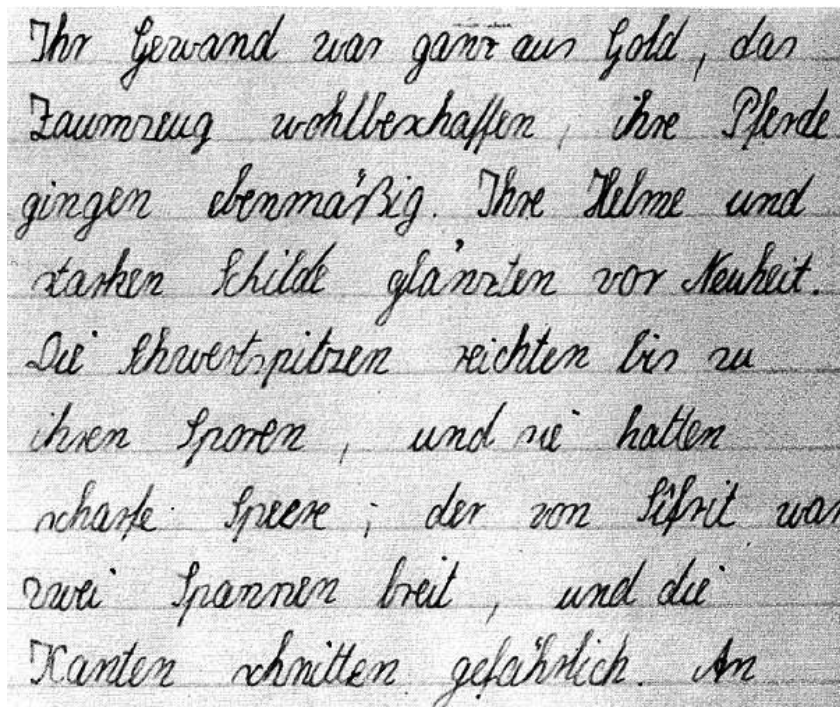 Ihr Gewand war ganz aus Gold, das
Zaumzeug wohlbeschaffen, ihre Pferde
gingen ebenmäßig. Ihre Helme und
starken Schilde glänzten vor Neuheit.
Die Schwertspitzen reichten bis zu
ihren Sporen, und sie hatten
scharfe Speere; der von Sîfrit war
zwei Spannen breit, und die
Kanten schnitten gefährlich. An